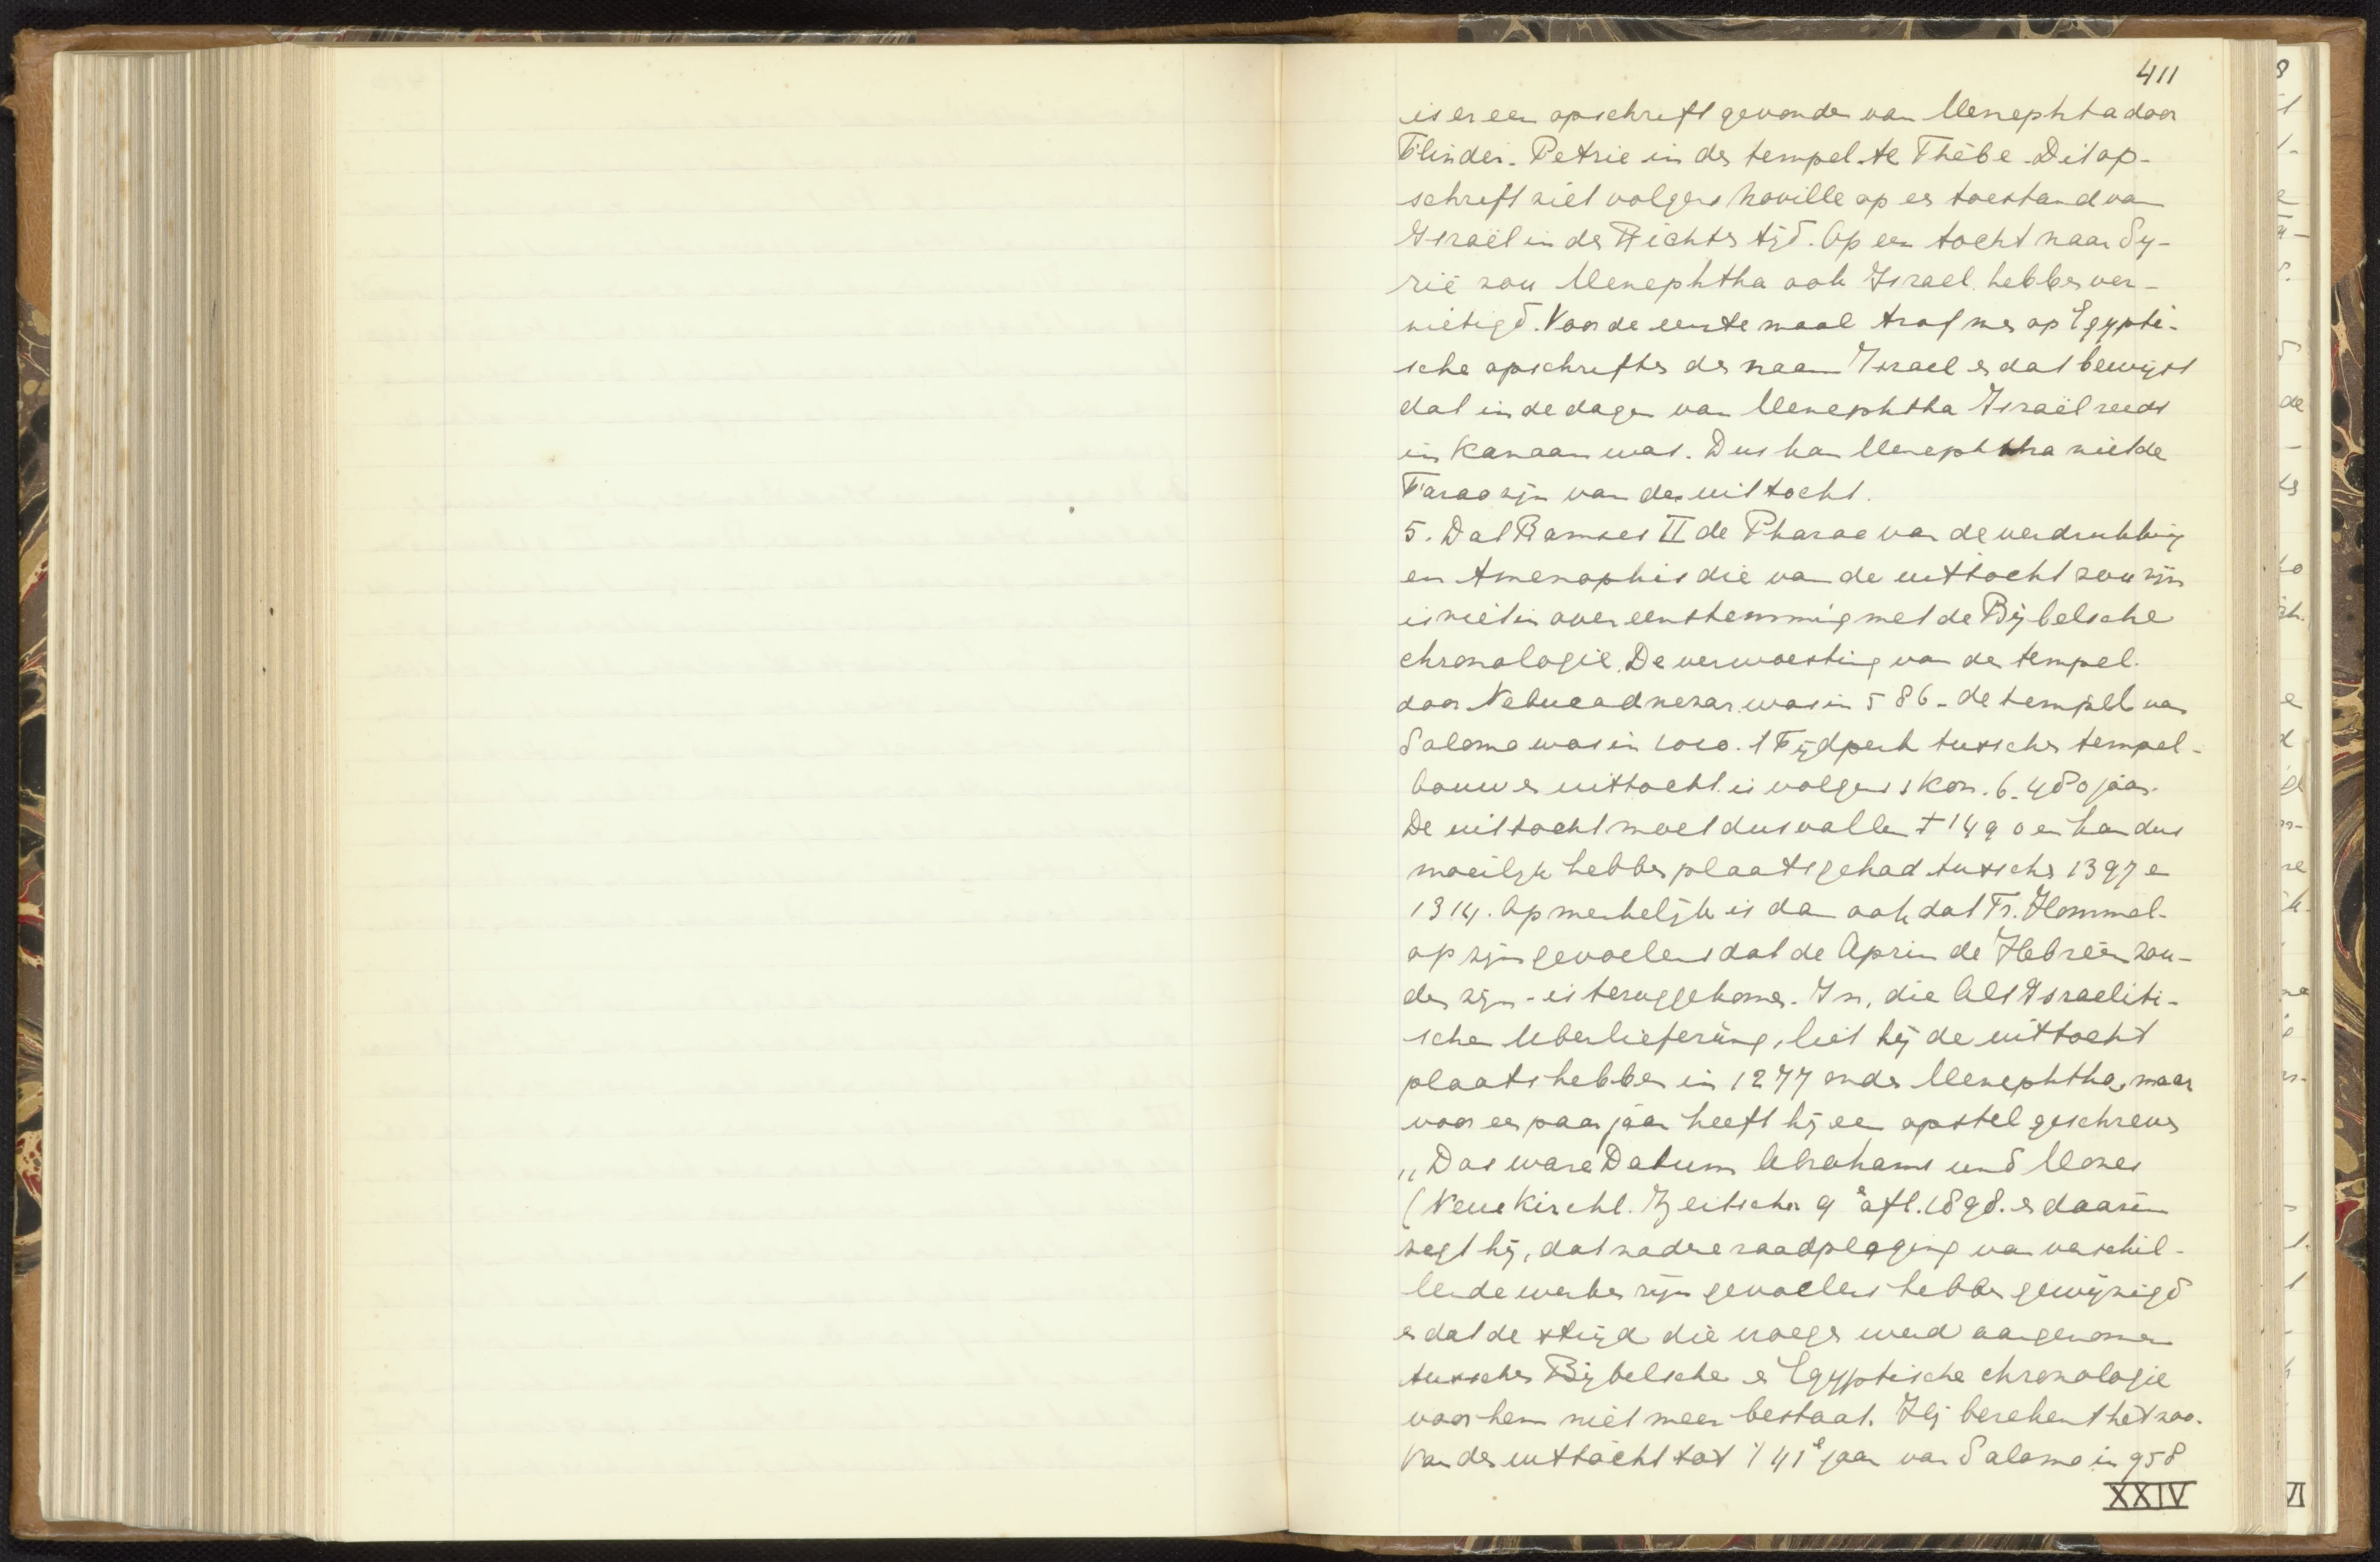 411
is er een opschrift gevonden van Menephta door
Flinder-Petrie in den tempel te Thebe. Dit op-
schrift ziet volgens Naville op een toestand van
Israël in den Richtertijd. Op een tocht naar Sy-
rië zou Menephtha ook Israel hebben ver-
nietigd. Voor de eerste maal trof men op Egypti-
sche opschriften den naam Israel en dat bewijst
dat in de dagen van Menephtha Israël reeds
in Kanaan was. Dus kan Menephtha niet de
Farao zijn van den uittocht.
5. Dat Ramses II de Pharao van de verdrukking
en Amenophis die van de uittocht zou zijn
is niet in overeenstemming met de Bijbelsche
chronologie. De verwoesting van den tempel
door Nebucadnezar was in 586 - de tempel van
Salomo was in 1010. 't Tijdperk tusschen tempel-
bouw en uittocht is volgens 1 Kon. 6. 480 jaar.
De uittocht moet dus vallen ± 1490 en kan dus
moeilijk hebben plaats gehad tusschen 1397 en
1314. Opmerkelijk is dan ook dat Fr. Hommel
op zijn gevoelens dat de Aprin de Hebreën zou-
den zijn - is teruggekomen. In, die Alt Israeliti-
schen Uberlieferüng, liet hij de uittocht
plaats hebben in 1277 onder Menephtha, maar
voor een paar jaar heeft hij een opstel geschreven
„Das ware Datum Abrahams und Moses
(Neue Kirchl. Zeitschr. 9e afl. 1898. en daarin
zegt hij, dat nadere raadpleging van verschil-
lende werken zijn gevoelens hebben gewijzigd
en dat de strijd die vroeger werd aangenomen
tusschen Bijbelsche en Egyptische chronologie
voor hem niet meer bestaat. Hij berekent het zoo.
Van den uittocht tot 't 41e jaar van Salomo in 958
XXIV